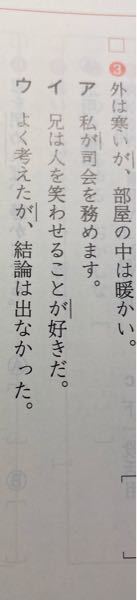 ❸外は寒いが、部屋の中は暖かい。［　］
ア　私が司会を務めます。
イ　兄は人を笑わせることが好きだ。
ウ　よく考えたが、結論は出なかった。